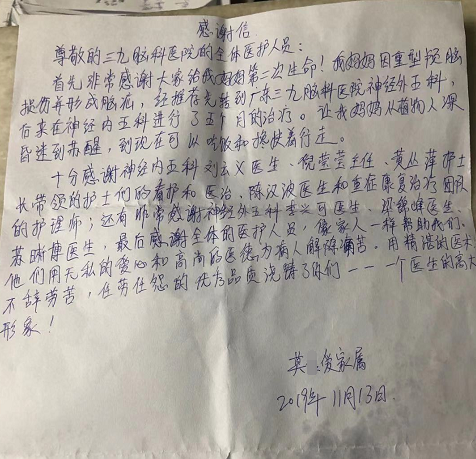 感谢信
尊敬的三九脑科医院的全体医护人员：
首先非常感谢大家给我妈妈第二次生命！我妈妈因重型颅脑
损伤并形成脑疝，经推荐先转到广东三九脑科医院神经外五科，
后来在神经内五科进行了五个月的治疗。让我妈妈从植物人深
昏迷到苏醒，到现在可以吃饭和搀扶着行走。
十分感谢神经内五科刘云义医生、倪莹莹主任、黄丛萍护士
长带领的护士们的看护和医治、陈汉波医生和重症康复治疗团队
的护理师；还有非常感谢神经外五科李兴可医生、梁毅峰医生、
苏晰博医生，最后感谢全体的医护人员，像家人一样帮助我们。
他们用无私的爱心和高尚的医德为病人解除痛苦。用精湛的医术
不辞劳苦，任劳任怨的优存品质浇铸了你们一一一个医生的高大
形象！
莫 俊家属
2019年11月13日.